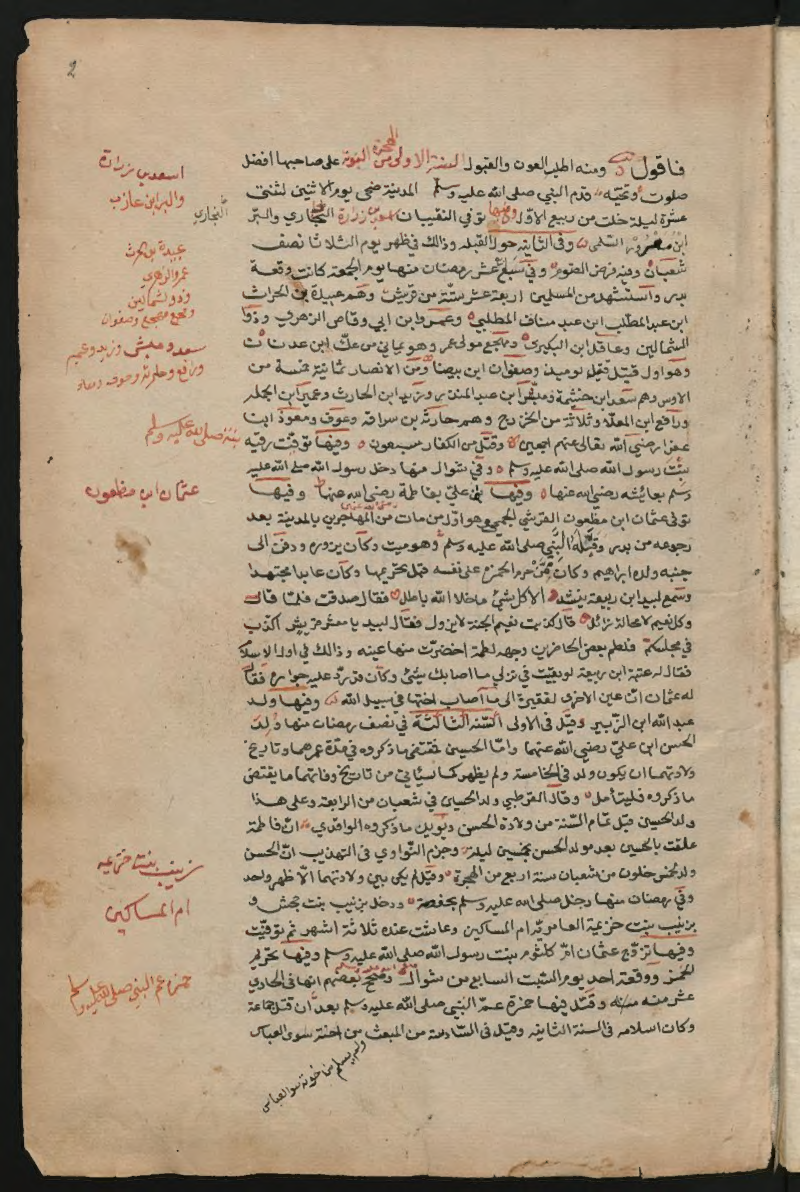 2
فاقول ومنه اطلب العون والقبول السنة الاولى من الهجرة النبوية على صاحبها افضل
صلوت وتحيه قدم النبي صلى الله عليه وسلم المدينة ضحى يوم الاثنين لثنتى
عشرة ليلة خلت من ربيع الاول وفيها توفي النقيبان اسعد بن زرارة النجاري والبر
ابن معرور السلمى وفى الثانية حولة القبله وذالك في ظهر يوم الثلاثا نصف
شعبان وفيه فرض الصوم وفي سبع عشر رمضان منها يوم الجمعة كانت وقعة
بدر واستشهد من المسلمين اربعة عشر ستة من قريش وهم عبيدة بن الحراث
ابن عبد المطلب ابن عبد مناف المطلبي وعمرو ابن ابي وقاص الزهري وذو
الشمالين وعاقل ابن البكيرى ومهجع مولى عمر وهو يماني من عك ابن عدنان
وهو اول قتيل قتل يوميذ وصفوان ابن بيضا ومن الانصار ثمانية خمسة من
الاوس وهم سعد ابن خيثمة ومبشر ابن عبد المنذر ويزيد ابن الحارث وعمير ابن الحمام
ورافع ابن المعلا وثلاثة من الخزرج وهم حارثه بن سراقه وعوف ومعوذ ابنا
عفرا رضي الله تعالى عنهم اجمعين وقتل من الكفار سبعون وفيها توفيت رقيه
بنت رسول الله صلى الله عليه وسلم وفي شوال منها دخل رسول الله صلى الله عليه
وسلم بعائشه رضي الله عنها وفيها بنى علي بفاطمة رضي الله عنها وفيها
توفى عثمان ابن مظعون القرشي الجمحي وهو اول من مات من المهاجرين بالمدينة بعد
رجوعه من بدر وقبله النبي صلى الله عليه وسلم وهو ميت وكان يزوره ودفن الى
جنبه ولده ابراهيم وكان ممن حرم الخمر على نفسه قبل تحريمها وكان عابدا مجتهدا
وسمع لبيد ابن ربيعة ينشد الا كل شئ ما خلا الله باطل فقال صدقت فلما قال
وكل نعيم لا محالة زائل قال كذبت نعيم الجنة لا يزول فقال لبيد يا معشر قريش اكذب
في مجلسكم فلطم بعض الحاضرين وجهه لطمة اخضرت منها عينه وذالك في اول الاسلام
فقال له عتبة ابن ربيعة لو بقيت في نزلي ما اصابك شئ وكان قد رد عليه جواره فقال
له عثمان ان عين الاخرى لفقيرة الى ما اصاب اختها في سبيل الله وفيها ولد
عبد الله ابن الزبير وقيل في الاولى السنة الثالثة في نصف رمضان منها ولد
الحسن ابن علي رضي الله عنهما واما الحسين فمقتضى ما ذكروه في مدة عمرهما وتاريخ
ولادتهما ان يكون ولد في الخامسة ولم يظهر كما سياتي من تاريخ وفاتهما ما يقتضى
ما ذكروه فليتامل وقال القرطبي ولد الحسين في شعبان من الرابعة وعلى هذا
ولد الحسين قبل تمام السنة من ولادة الحسن ويويد ماذكروه الواقدي ان فاطمة
علقت بالحسين بعد مولد الحسن بخمسين ليلة وجزم النواوي في التهذيب ان الحسن
ولد لخمس خلون من شعبان سنة اربع من الهجرة وقيل لم يكن بين ولادتهما الا ظهر واحد
وفي رمضان منها دخل صلى الله عليه وسلم بحفصة ودخل بزينب بنت جحش و
بزينب بنت خزيمة العامرية ام المساكين وعاشت عنده ثلاثة اشهر ثم توفيت
وفيها تزوج عثمان ام كلثوم بنت رسول الله صلى الله عليه وسلم وفيها تحريم
الخمر ووقعة احد يوم السبت السابع من شوال وصحح بعضهم انها في الحادي
عشر منه وقتل فيها حمزة عم النبي صلى الله عليه وسلم بعد ان قتل جماعة
وكان اسلامه في السنة الثانية وقيل في السادسة من المبعث من اخوته سوى العباس
ولم يسلم من اخوته سوا العباس
اسعد بن زرارة
والبر ابن عازب
النجاري
عبيدة بن الحرث
عمرو الزهري
وذو الشمالين
ومهجع وصفوان
سعد ومبشر وزيد وعمير
ورافع وحارثة وعوف ومعاذ
بنته صلى الله عليه وسلم
عثمان ابن مظعون
زينب بنت خزيمه
ام المساكين
حمزه عم النبي صلى الله عليه وسلم